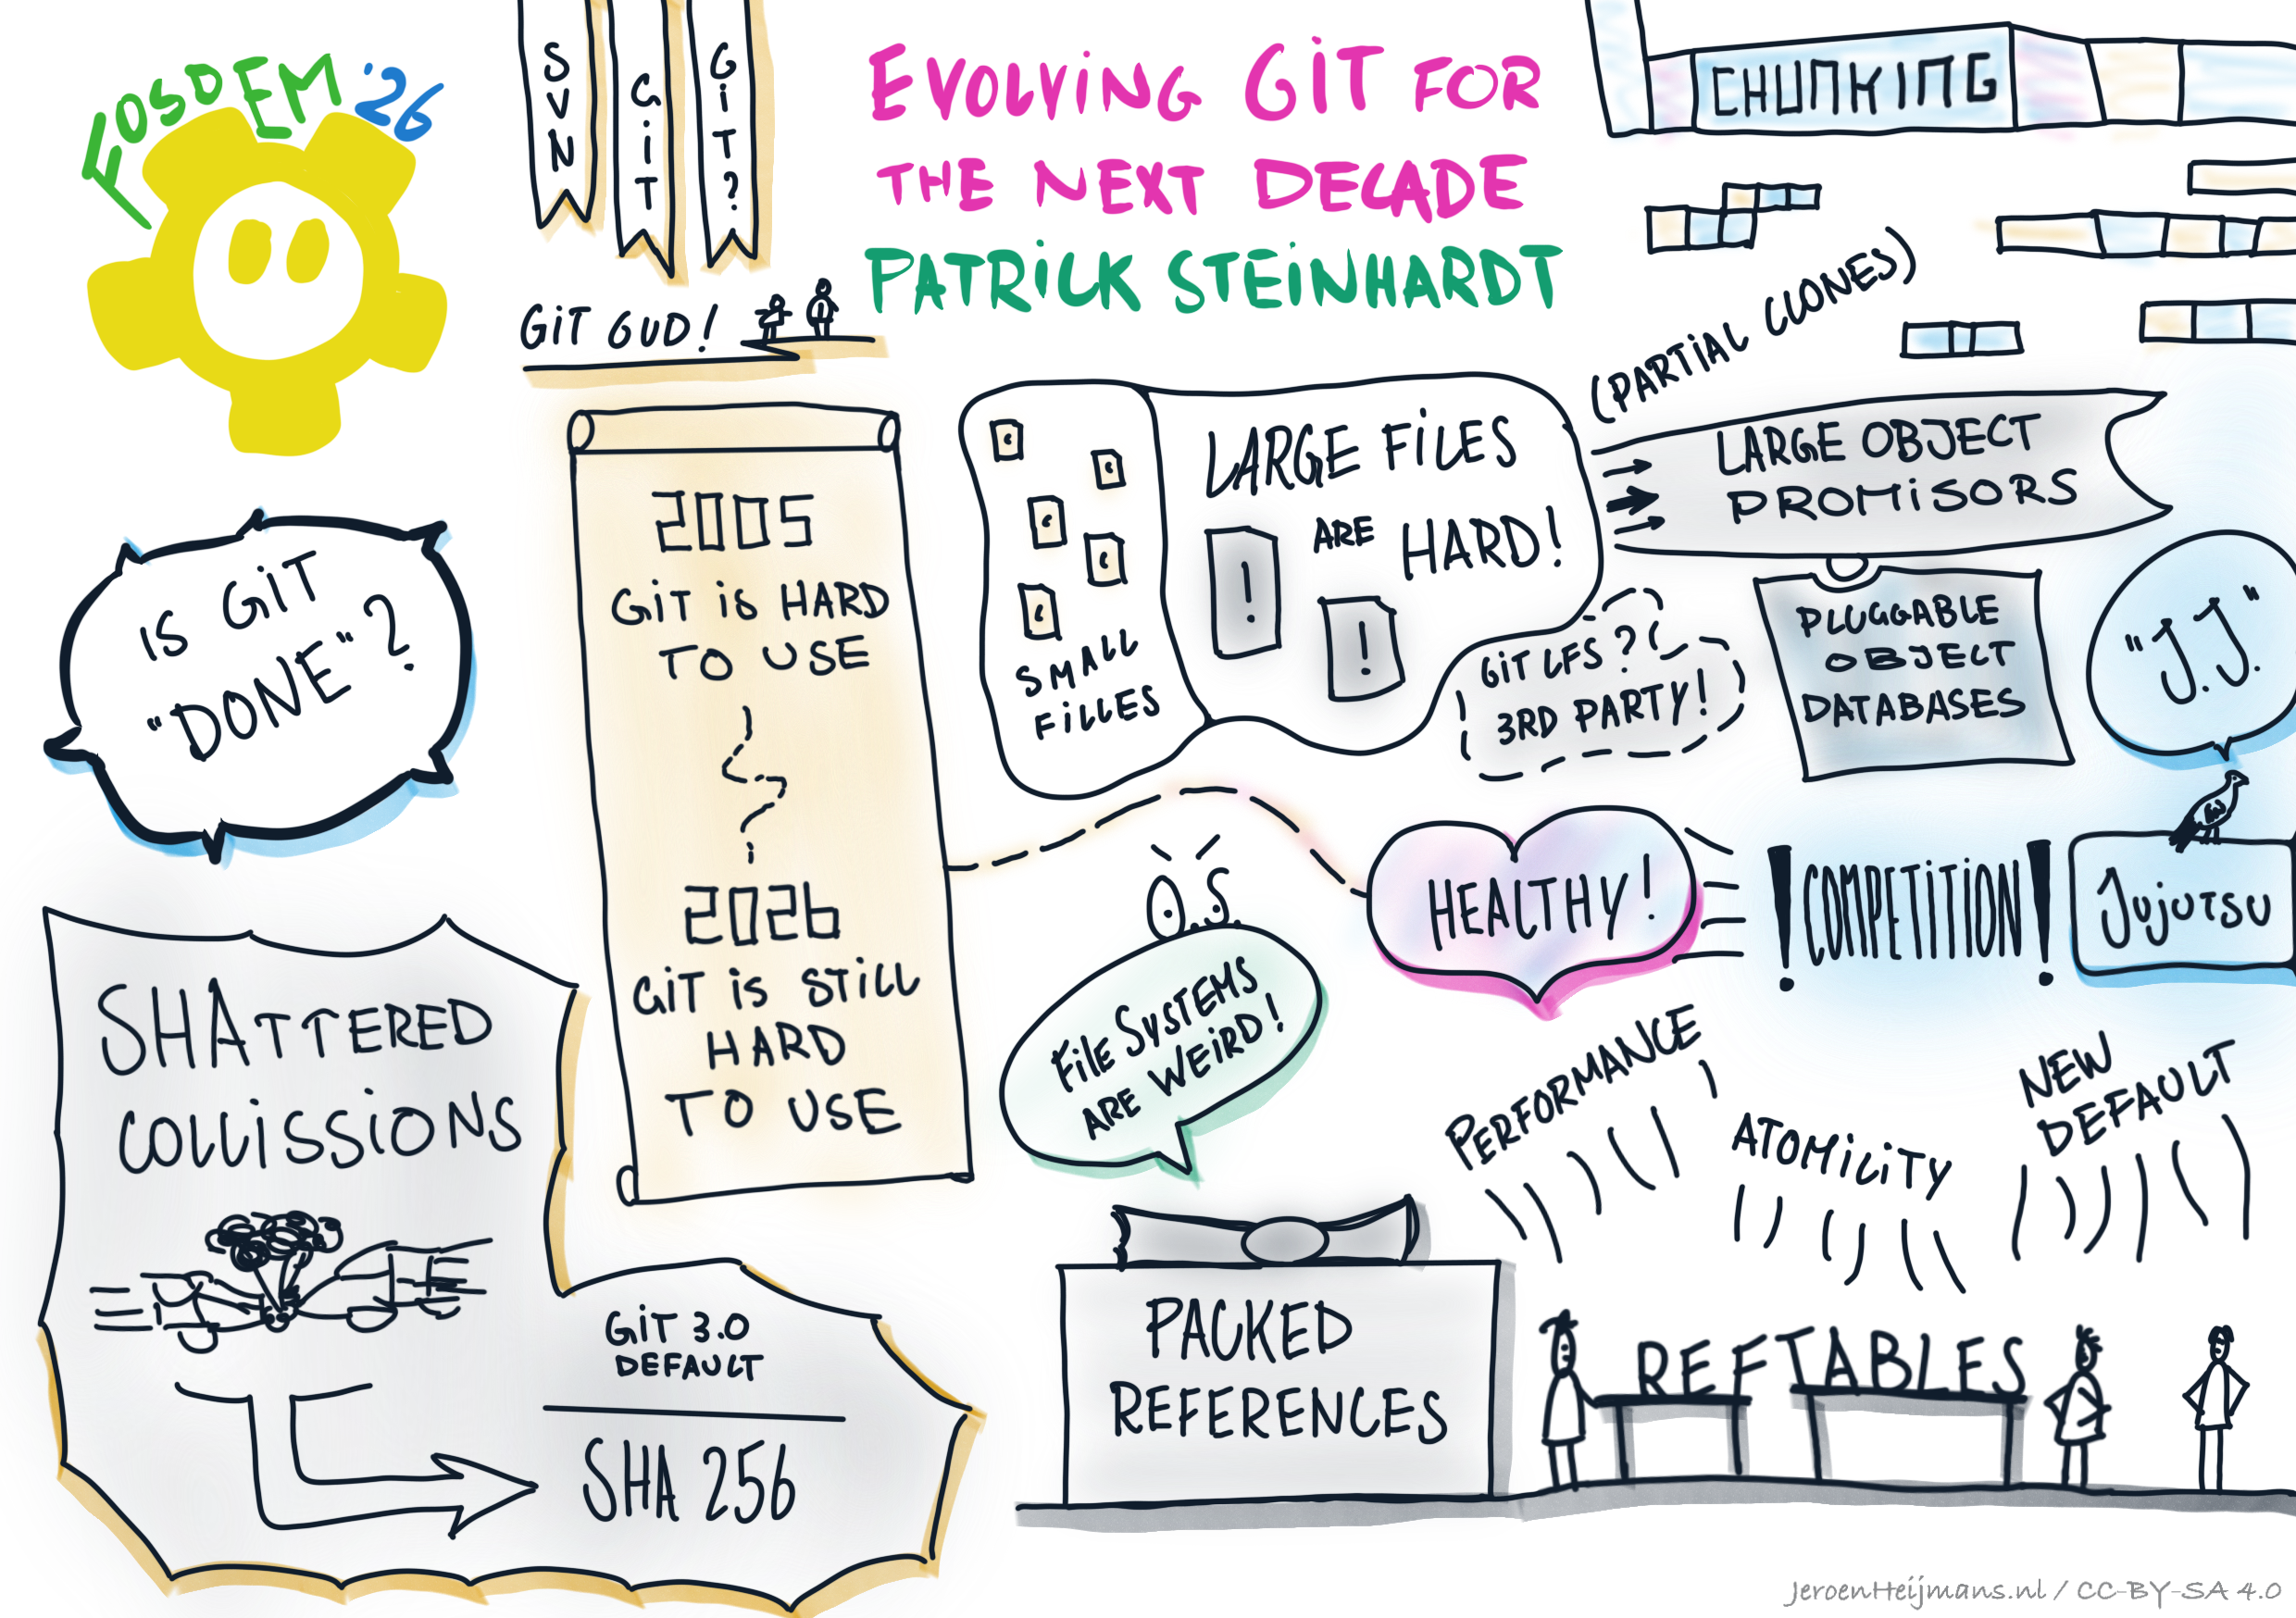 FOSDEM '26
SVN
GIT
GIT?
EVOLVING GIT FOR
THE NEXT DECADE
PATRICK STEINHARDT
GIT GUD!
CHUNKING
(PARTIAL CLONES)
LARGE OBJECT
PROMISORS
PLUGGABLE
OBJECT
DATABASES
"J.J."
IS GIT
"DONE"?
2005
GIT IS HARD
TO USE
2026
GIT IS STILL
HARD
TO USE
C
C
C
C
C
SMALL
FILLES
LARGE FILES
ARE HARD!
!
!
GIT LFS?
3RD PARTY!
HEALTHY!
!COMPETITION!
JUJUTSU
O.S.
FILE SYSTEMS
ARE WEIRD!
SHATTERED
COLLISSIONS
GIT 3.0
DEFAULT
SHA 256
PACKED
REFERENCES
PERFORMANCE
ATOMICITY
NEW
DEFAULT
REFTABLES
JeroenHeijmans.nl / CC-BY-SA 4.0